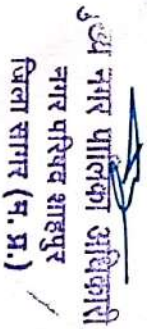 मुख्य नगर पालिका अधिकारी
नगर परिषद शाहपुर
जिला सागर (म.प्र.)